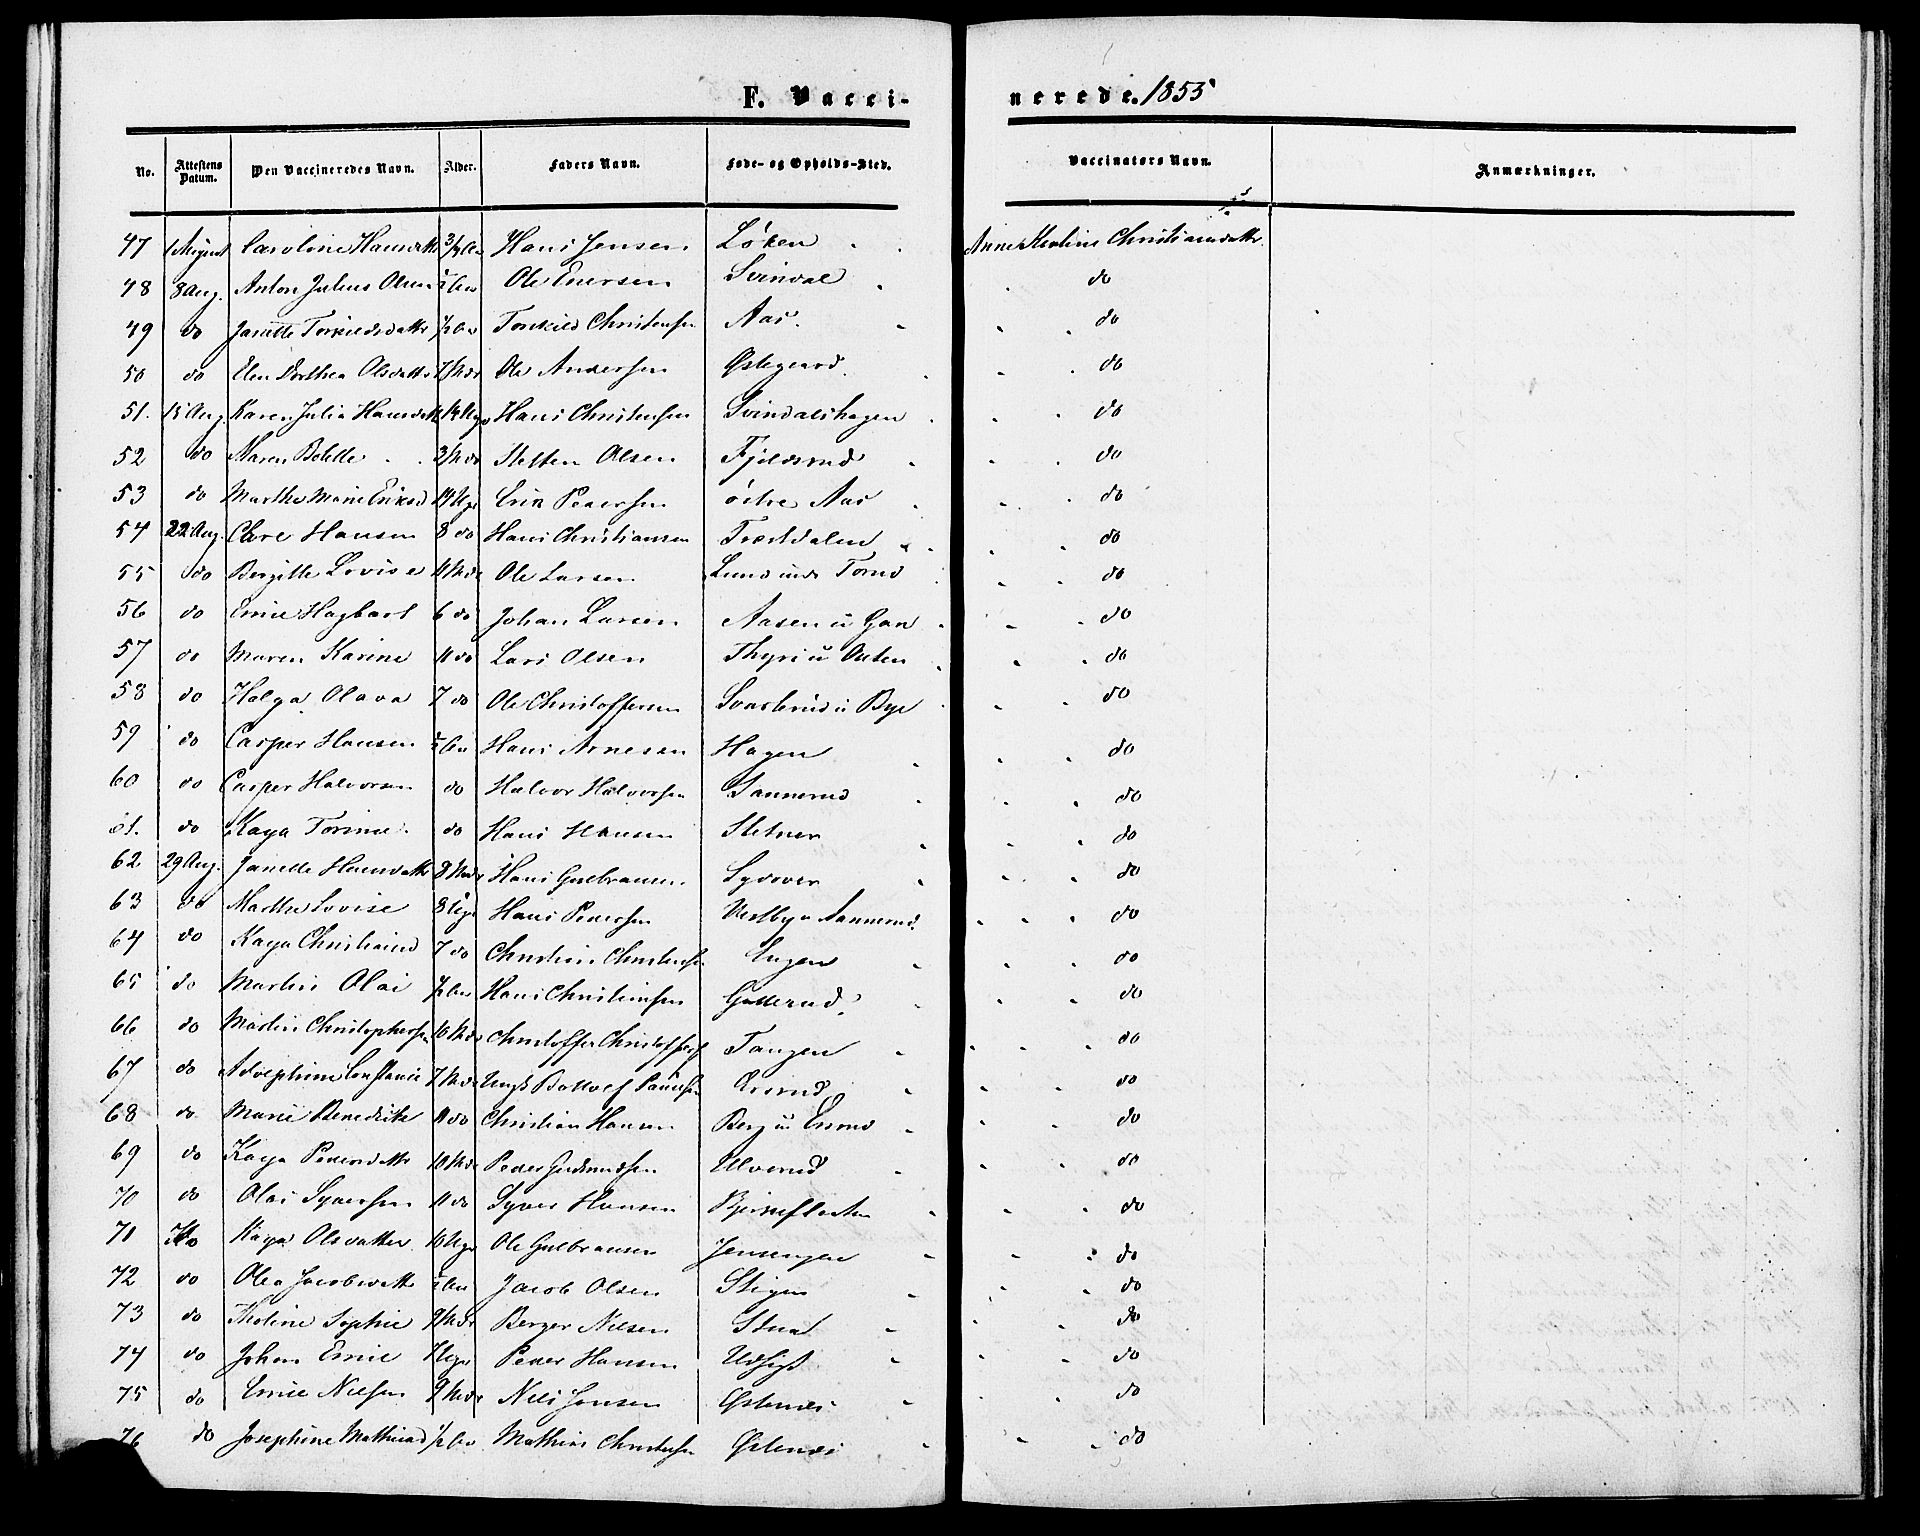 F. Vaccinerede. 1855
No. | Attestens Datum. | Den Vaccineredes Navn. | Alder. | Faders Navn. | Føde- og Opholds-Sted. | Vaccinators Navn. | Anmærkninger.
47 | 1 August | Caroline Hansdatt | 3/4 Aar | Hans Jensen | Löken | Anne Christiansdatter
48 | 8 Aug. | Anton Julius Olsen | 1/2 Aar | Ole Enersen | Svindal | do
49 | do | Janette Torkildsdattr | 1/2 Aar | Torkild Christensen | Aas. | do
50 | do | Elen Dorthea Olsdattr | 7/Mdr | Ole Andersen | Østegaard. | do
51. | 15 Aug. | Karen Julia Hansdatt | 14 Uger | Hans Christensen | Svindalshagen | do
52 | do | Maren Bolette | 3/Mdr | Steffen Olsen | Fjeldsrud | do
53 | do | Marthe Marie Eriksd | 14 Uger | Erik Pedersen | östre Aas | do
54 | 22 Aug. | Hansen | 8 do | Hans Christiansen | do
55 | do | Bergitte Lovise | 11 Mdr | Ole Larsen | Lund und | do
56 | do | Emil Hagbart | 6 do | Johan Larsen | Aasen u | do
57 | do | Maren Karine | 11 do | Lars Olsen | Thyri u | do
58 | do | Helga Olava | 7 do | Ole Christoffersen | Svartrud u Bye | do
59 | do | Casper Hansen | 1/2 Aar | Hans Arnesen | Hagen | do
60 | do | Casper Halvorsen | do | Halvor Halvorsen | Sannerud | do
61. | do | Kaya Torine. | do | Hans Hansen | Stetner | do
62 | 29 Aug. | Janette Hansdattr | 8 Mndr | Hans Gulbransen | Sydover | do
63 | do | Marthe Lovise | 8 Uger | Hans Pedersen | Vestby u Sannerud. | do
64 | do | Kaya Christiansd | 7 do | Christian Christensen | Engen | do
65 | do | Martin Olai | 1/2 Aar | Hans Christiansen | Gullerud. | do
66 | do | Martin Christophersen | 10 Mdr | Christoffer Christoffers | Tangen | do
67 | do | Adolphine Constance | 7 Mdr | Paulsen | do
68 | do | Marie Benedikte | 11 do | Christian Hansen | Berg u | do
69 | do | Kaya Pedersdattr | 10 Mdr | Peder Gudmundsen | Ulverud | do
70 | do | Olai Syversen | 11 do | Syver Hansen | Björneflaten | do
71 | do | Kaya Olsdatter | 10 Uger | Ole Gulbransen | Jensengen | do
72 | do | Olea Jacobsdattr | 1/2 Aar | Jacob Olsen | Stigen | do
73 | do | Tholine Sophie | 9 Mdr | Berger Nilsen | Stua | do
74 | do | Johan Emil | 7 Uger | Peder Hansen | Udsigt | do
75 | do | Emil Nilsen | 9 Mdr | Nils Jensen | Østensi | do
76 | do | Josephine Mathiasd | 1/2 Aar | Mathias Christensen | Østensi | do